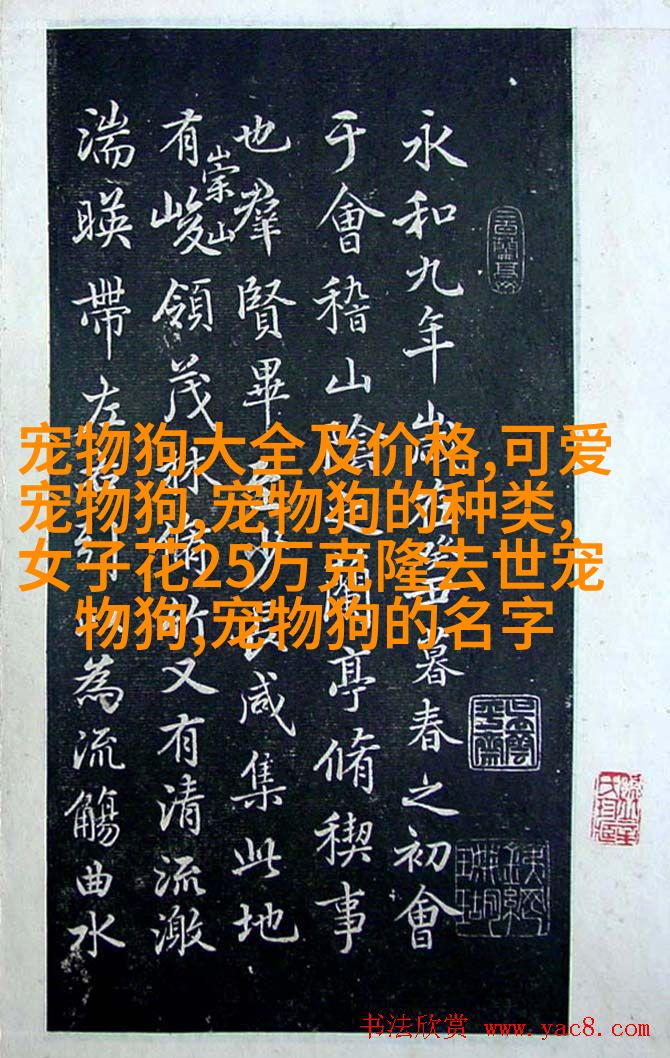 永和九年歲在癸丑暮春之初會
于會稽山陰之蘭亭脩稧事
也羣賢畢至少長咸集此地
有崇山峻領茂林脩竹又有清流激
湍暎帶左右引以為流觴曲水
宠物狗大全及价格,可爱
宠物狗,宠物狗的种类,
女子花25万克隆去世宠
物狗,宠物狗的名字
书法欣赏 www.yac8.com